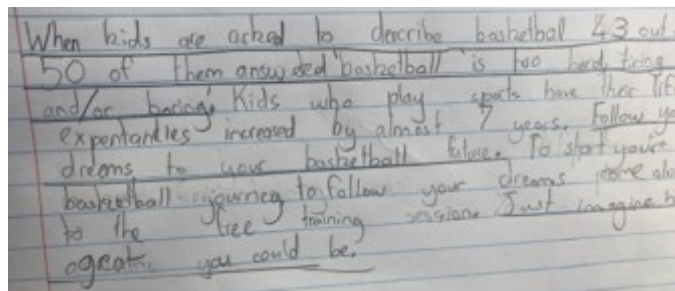 When kids are acked to describe basketball 43 out
50 of them answered 'basketball is too hard, tiring
and/or boring'. Kids who play sports have their life
expentanties increased by almost 7 years. Follow
dreams to your basketball future. To start you're
basketball journey to follow your dreams come
to the free training session. Just imagine
great you could be.